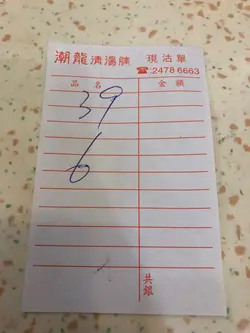 潮龍清湯腩 現沽單
☎:2478 6663
品名 金額
39
6
共銀